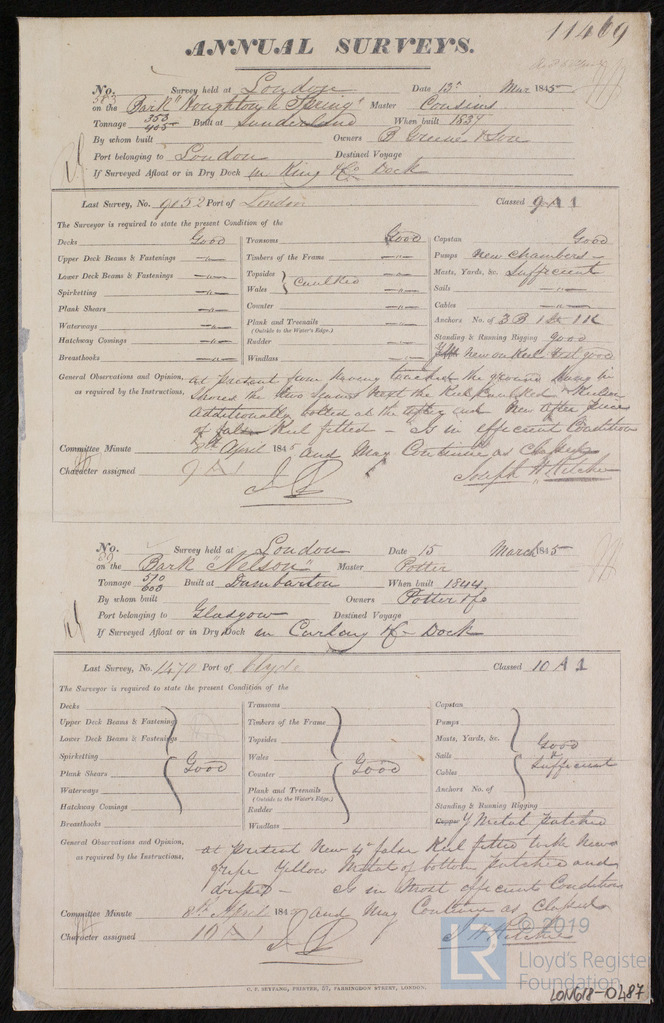 11469
ANNUAL SURVEYS.
No. 583 Survey held at London Date 13th Mar 1845
on the Bark "Houghton le Spring" Master Cousins
Tonnage 353 405 Built at Sunderland When built 1837
By whom built Owners B Greene & Son
Port belonging to London Destined Voyage
If Surveyed Afloat or in Dry Dock in King & Co Dock
Last Survey, No. 9052 Port of London Classed 9 A 1
The Surveyor is required to state the present Condition of the
Decks Good Transoms Good Capstan Good
Upper Deck Beams & Fastenings —"— Timbers of the Frame —"— Pumps New chambers
Lower Deck Beams & Fastenings —"— Topsides Caulked —"— Masts, Yards, &c. Sufficient
Spirketting —"— Wales —"— Sails —"—
Plank Shears —"— Counter —"— Cables —"—
Waterways —"— Plank and Treenails —"— Anchors No. of 3 B 1 St 1 K
(Outside to the Water's Edge.)
Hatchway Comings —"— Rudder —"— Standing & Running Rigging Good
Breasthooks —"— Windlass —"— new on Keel good
General Observations and Opinion, at present from having touched the ground
as required by the Instructions, shored the two Seams next the Keel Caulked Keelson
Additionally bolted at the after end New after piece
of false Keel fitted — Is in efficient Condition
Committee Minute 8th April 1845 and May Continue as Classed
Character assigned 9 A 1 Joseph H Ritchie
No. 59 Survey held at London Date 15 March 1845
on the Bark "Nelson" Master Potter
Tonnage 510 600 Built at Dumbarton When built 1844
By whom built Owners Potter & Co
Port belonging to Glasgow Destined Voyage
If Surveyed Afloat or in Dry Dock in Curling & Co Dock
Last Survey, No. 1470 Port of Clyde Classed 10 A 1
The Surveyor is required to state the present Condition of the
Decks Transoms Capstan
Upper Deck Beams & Fastening Timbers of the Frame Pumps
Lower Deck Beams & Fastenings Topsides Masts, Yards, &c. Good
Spirketting Wales Sails &
Plank Shears Good Counter Good Cables Sufficient
Waterways Plank and Treenails Anchors No. of
(Outside to the Water's Edge.)
Hatchway Comings Rudder Standing & Running Rigging
Breasthooks Windlass Copper Y Metal patched
General Observations and Opinion, at present New 4 in false Keel fitted with New
as required by the Instructions, gripe Yellow Metal of bottom patched and
— Is in Most efficient Condition
Committee Minute 8th April 184 and May Continue as Classed
Character assigned 10 A 1 J H Ritchie
C. F. SEYFANG, PRINTER, 57, FARRINGDON STREET, LONDON.
LR © 2019
Lloyd's Register
Foundation
LON618-0487